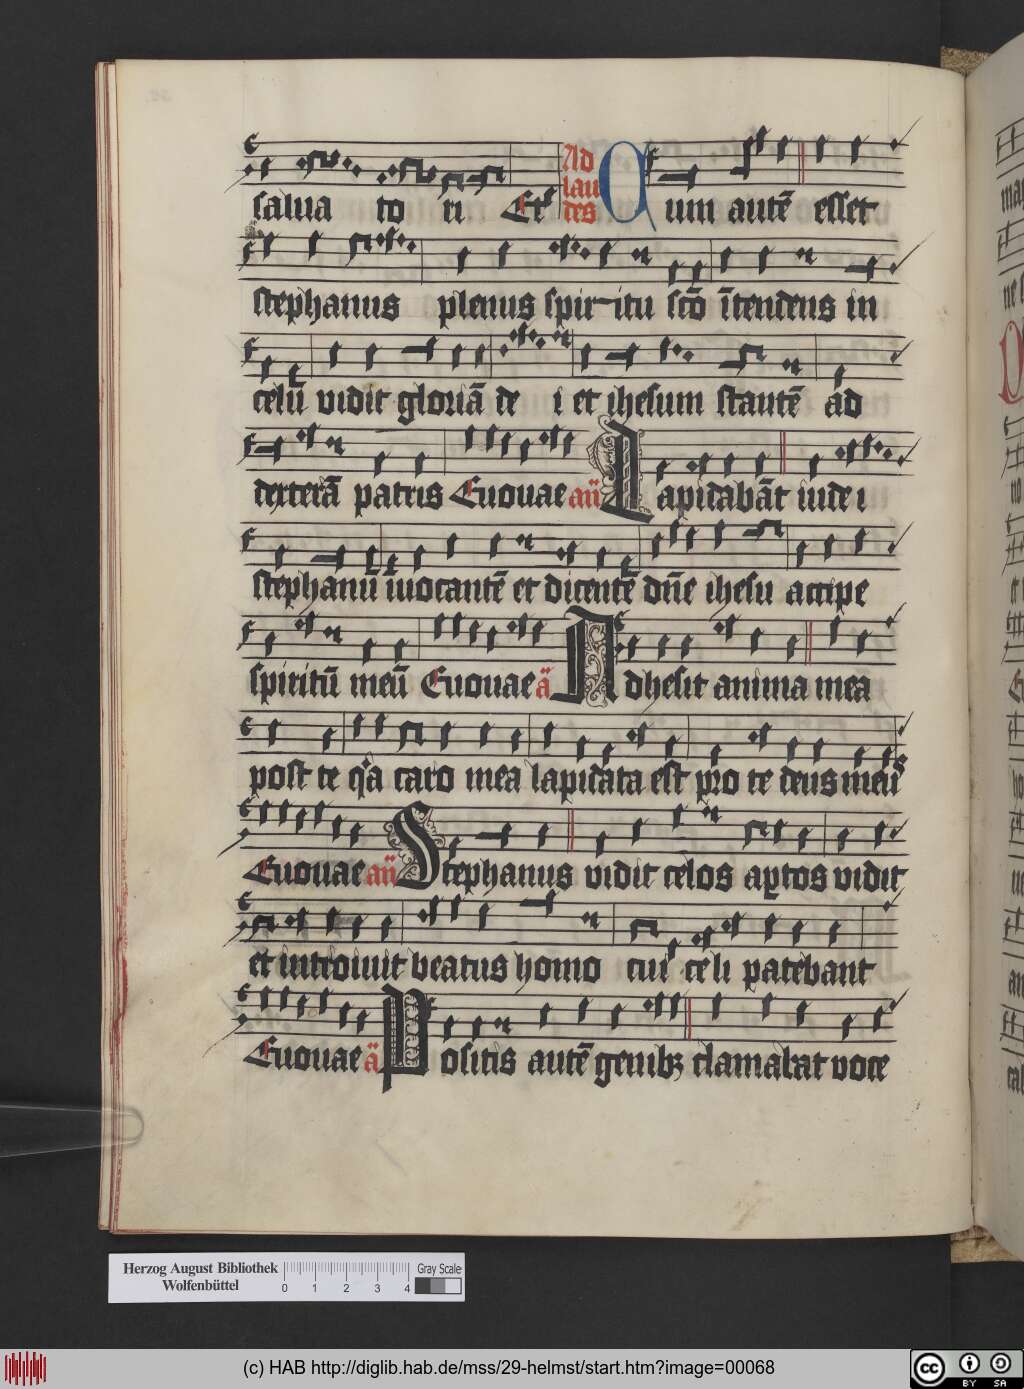 salua to ri Et Ad laudes Cum autē esset
stephanus plenus spir itu scō ītendens in
celū vidit gloriā de i et ihesum stantē ad
dexterā patris Euouae an̄ Lapidabāt iude i
stephanū īuocantē et dicentē dn̄e ihesu accipe
spiritū meū Euouae ā Adhesit anima mea
post te q̇a caro mea lapidata est pro te deus meus
Euouae an̄ Stephanus vidit celos aꝑtos vidit
et introiuit beatus homo cui celi patebant
Euouae ā Positis autē genibꝫ clamabat voce
Herzog August Bibliothek
Wolfenbüttel
0 1 2 3 4
Gray Scale
(c) HAB http://diglib.hab.de/mss/29-helmst/start.htm?image=00068
cc BY SA